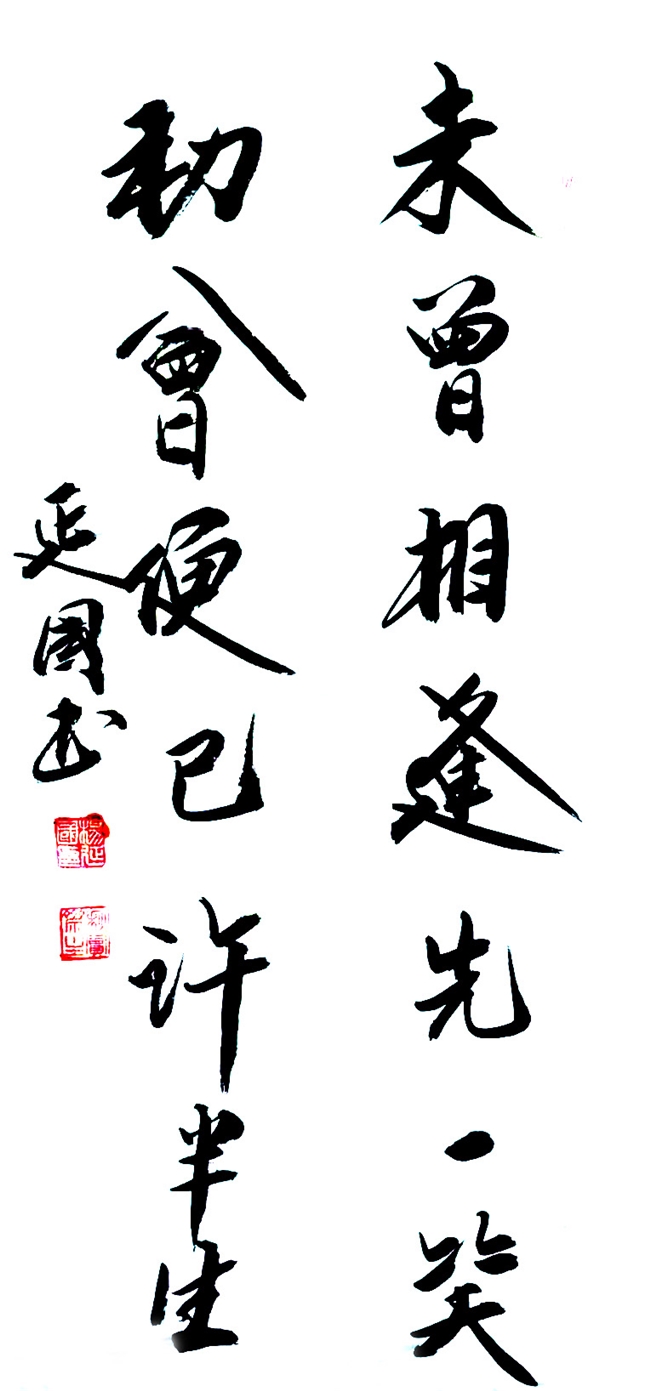 未曾相逢先一笑
初會便已许半生
延國书